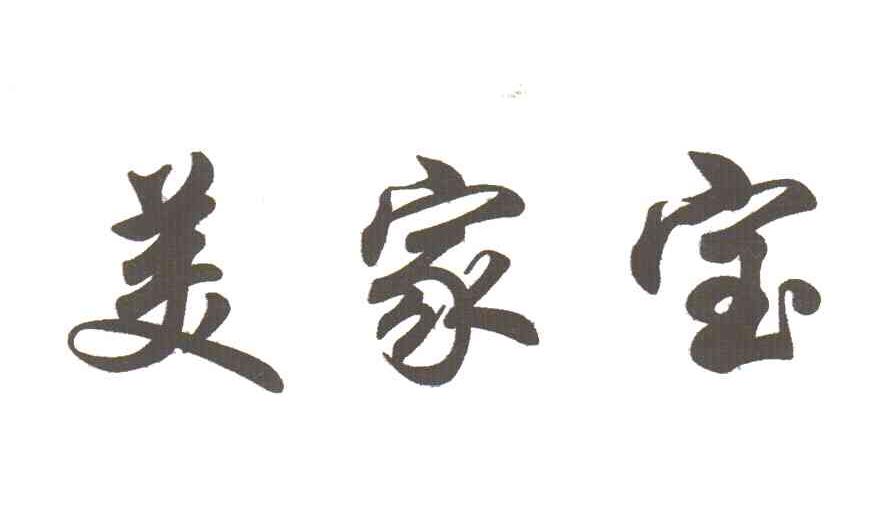 美家宝